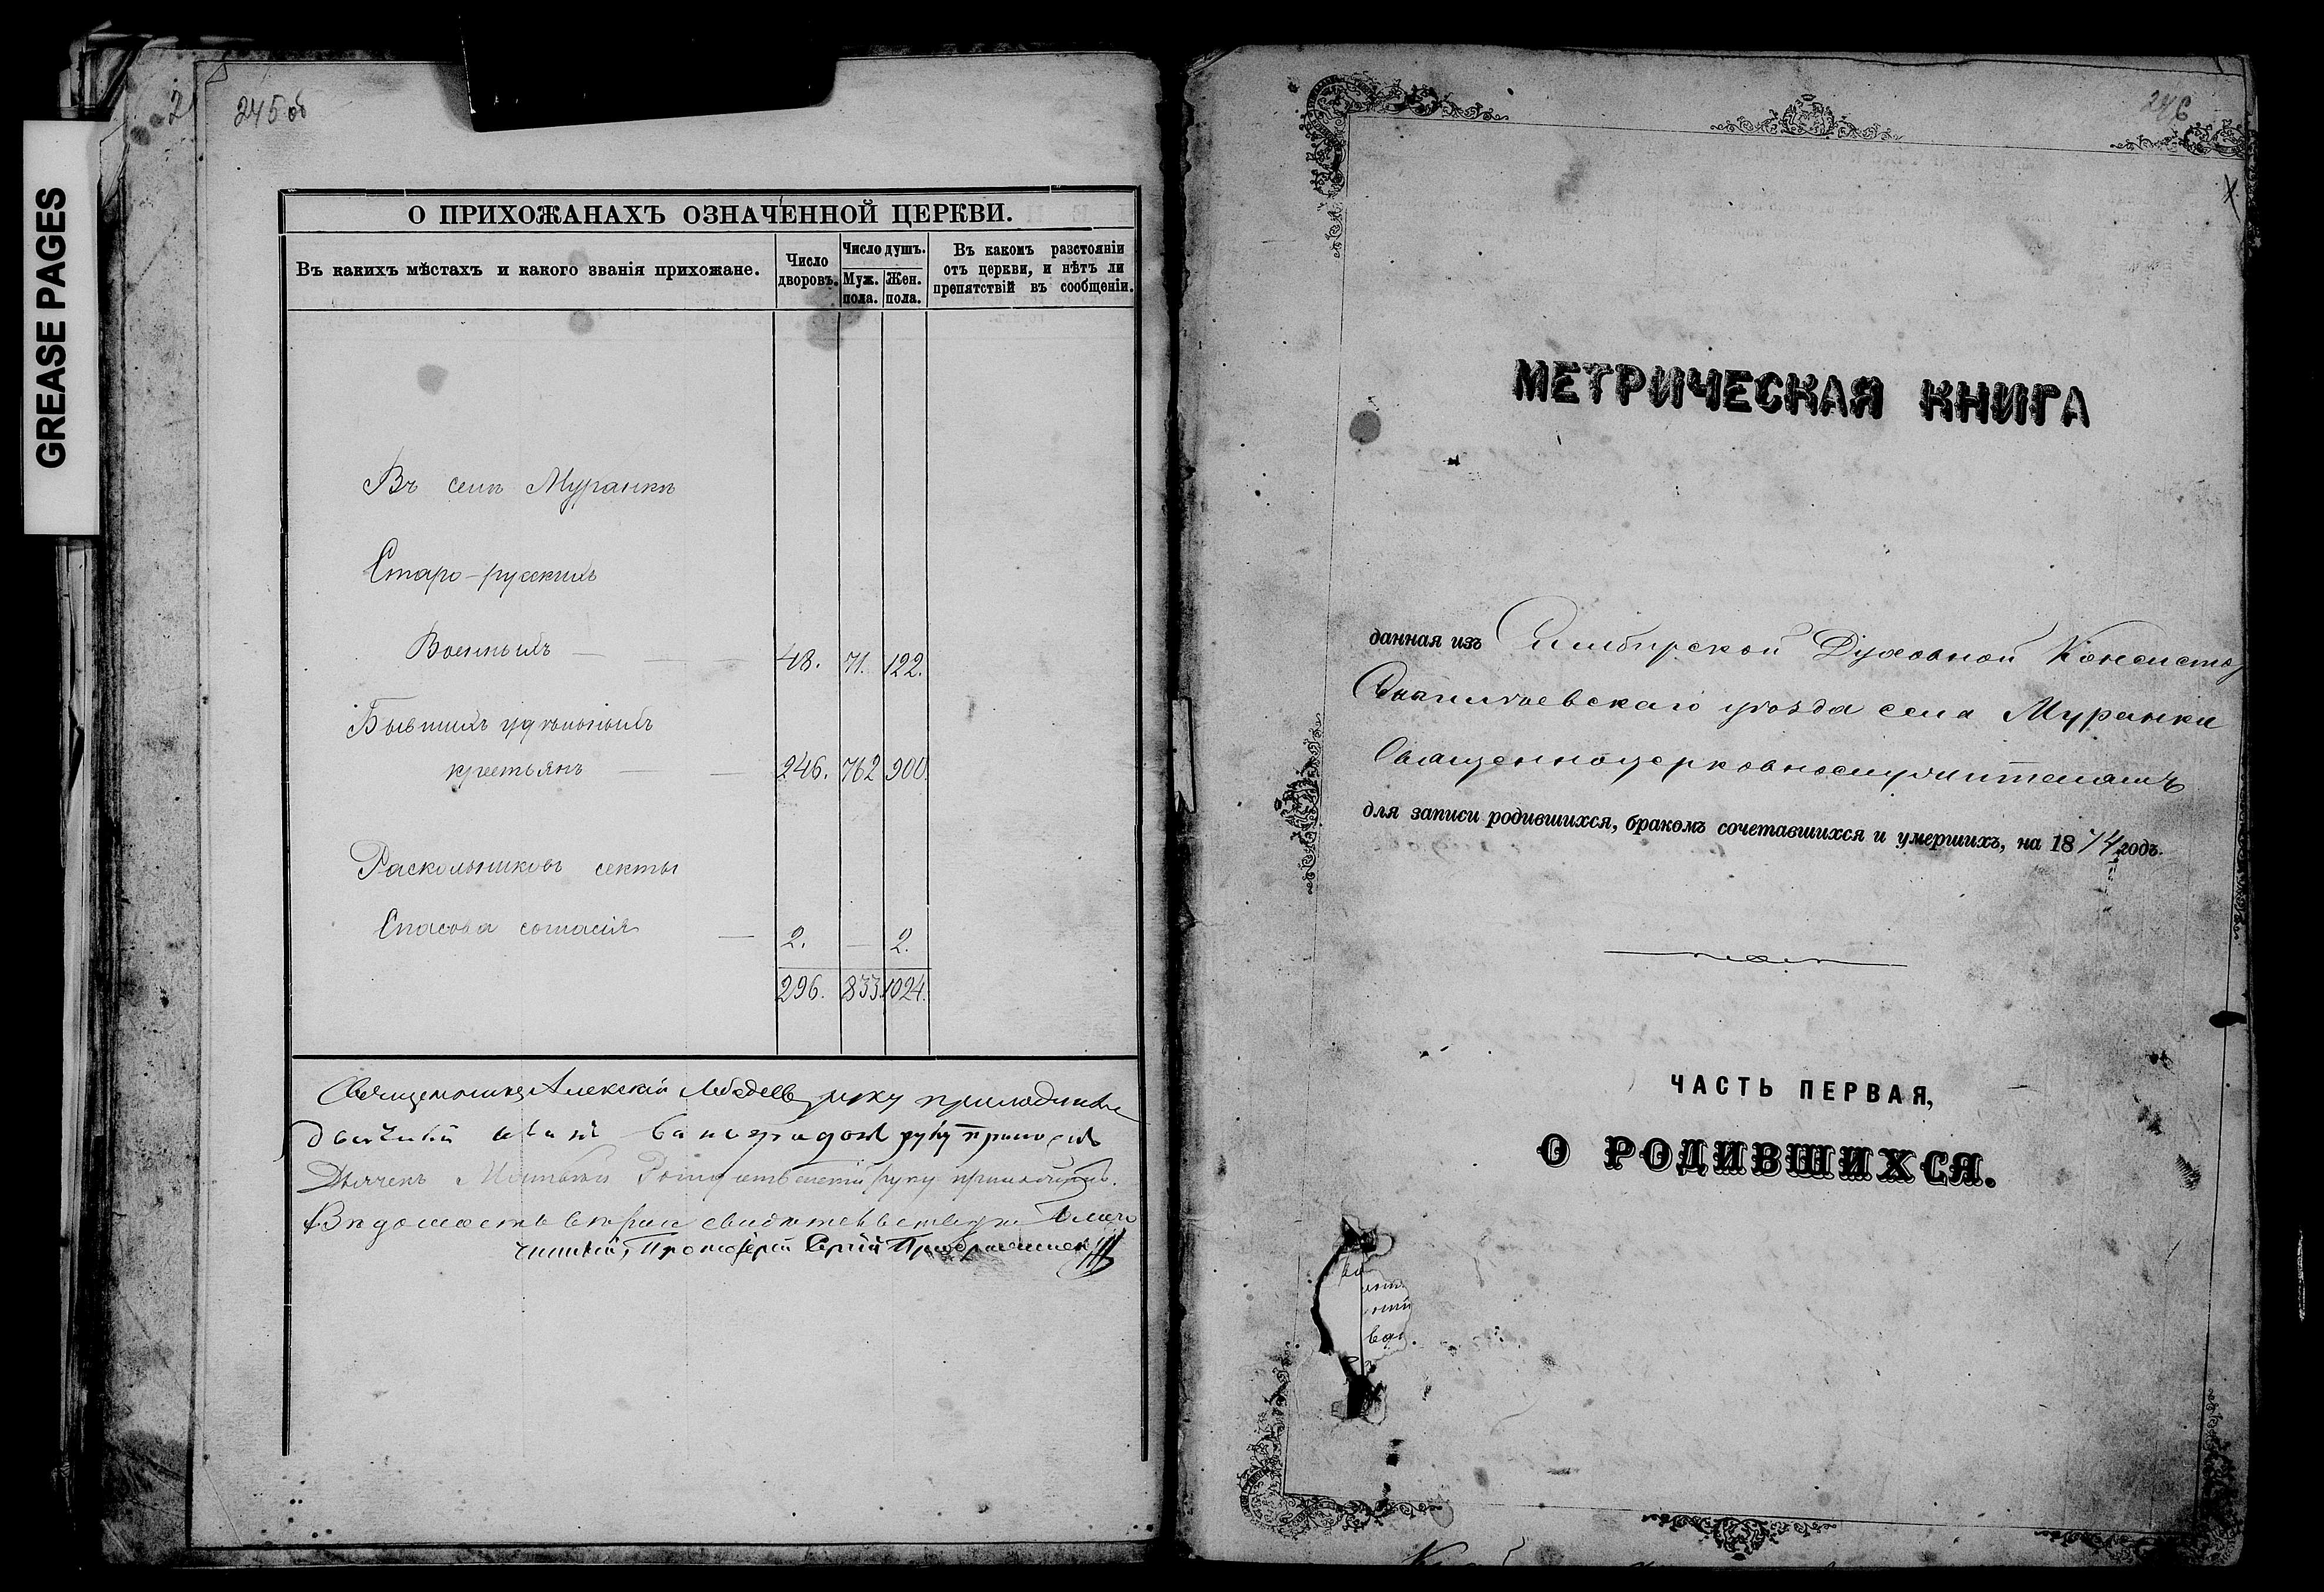 GREASE PAGES
2
245 об
О ПРИХОЖАНАХЪ ОЗНАЧЕННОЙ ЦЕРКВИ.
Въ какихъ мѣстахъ и какого званія прихожане.
Число дворовъ.
Число душъ.
Муж. пола.
Жен. пола.
Въ какомъ разстояніи
отъ церкви, и нѣтъ ли
препятствій въ сообщеніи.
Въ селѣ Муранкѣ
Старо-русскихъ
Военныхъ — — — 48. 71. 122.
Бывшихъ удѣльныхъ
крестьянъ — — 246. 762 900.
Раскольниковъ секты
Спасова согласія — 2. — 2.
296. 833. 1024.
Священникъ Алексѣй Лебедевъ руку приложилъ
руку приложилъ
Дьячекъ руку приложилъ.
Вѣдомость
чинный, Протоіерей Сергій
246
МЕТРИЧЕСКАЯ КНИГА
данная изъ Симбирской Духовной Консисто
Сенгилеевскаго уѣзда села Муранки
Священноцерковнослужителямъ
для записи родившихся, бракомъ сочетавшихся и умершихъ, на 1874 годъ.
ЧАСТЬ ПЕРВАЯ,
О РОДИВШИХСЯ.